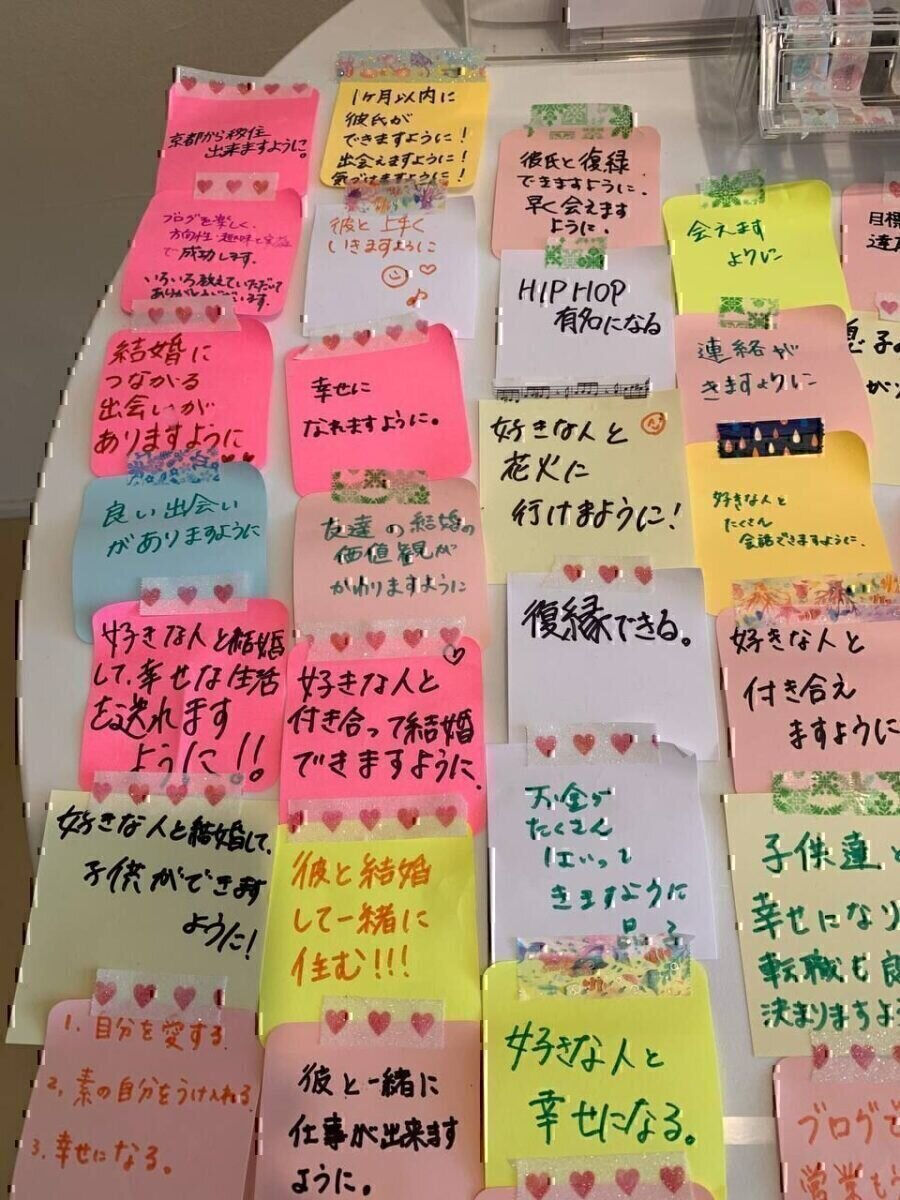 京都から移住
出来ますように。
ブログを楽しく、
方向性・趣味と実益
で成功します。
いろいろ教えていただいて
ありがとうございます。
結婚に
つながる
出会いが
ありますように
良い出会い
がありますように
好きな人と結婚
して、幸せな生活
を送れます
ように!!
好きな人と結婚して、
子供ができます
ように!
1. 自分を愛する
2. 素の自分をうけ入れる
3. 幸せになる。
1ヶ月以内に
彼氏が
できますように!
出会えますように!
気づけますように!
彼と上手く
いきますように
幸せに
なれますように。
友達の結婚の
価値観が
かわりますように
好きな人と
付き合って結婚
できますように
彼と結婚
して一緒に
住む!!!
彼と一緒に
仕事が出来ます
ように。
彼氏と復縁
できますように、
早く会えます
ように。
HIP HOP
有名になる
好きな人と
花火に
行けまように!
復縁できる。
お金が
たくさん
はいって
きますように
好きな人と
幸せになる。
会えます
ように
連絡が
きますように
好きな人と
たくさん
会話できますように、
好きな人と
付き合え
ますように
子供達と
幸せになり
転職も良
決まりますよう
ブログで
目標
息子